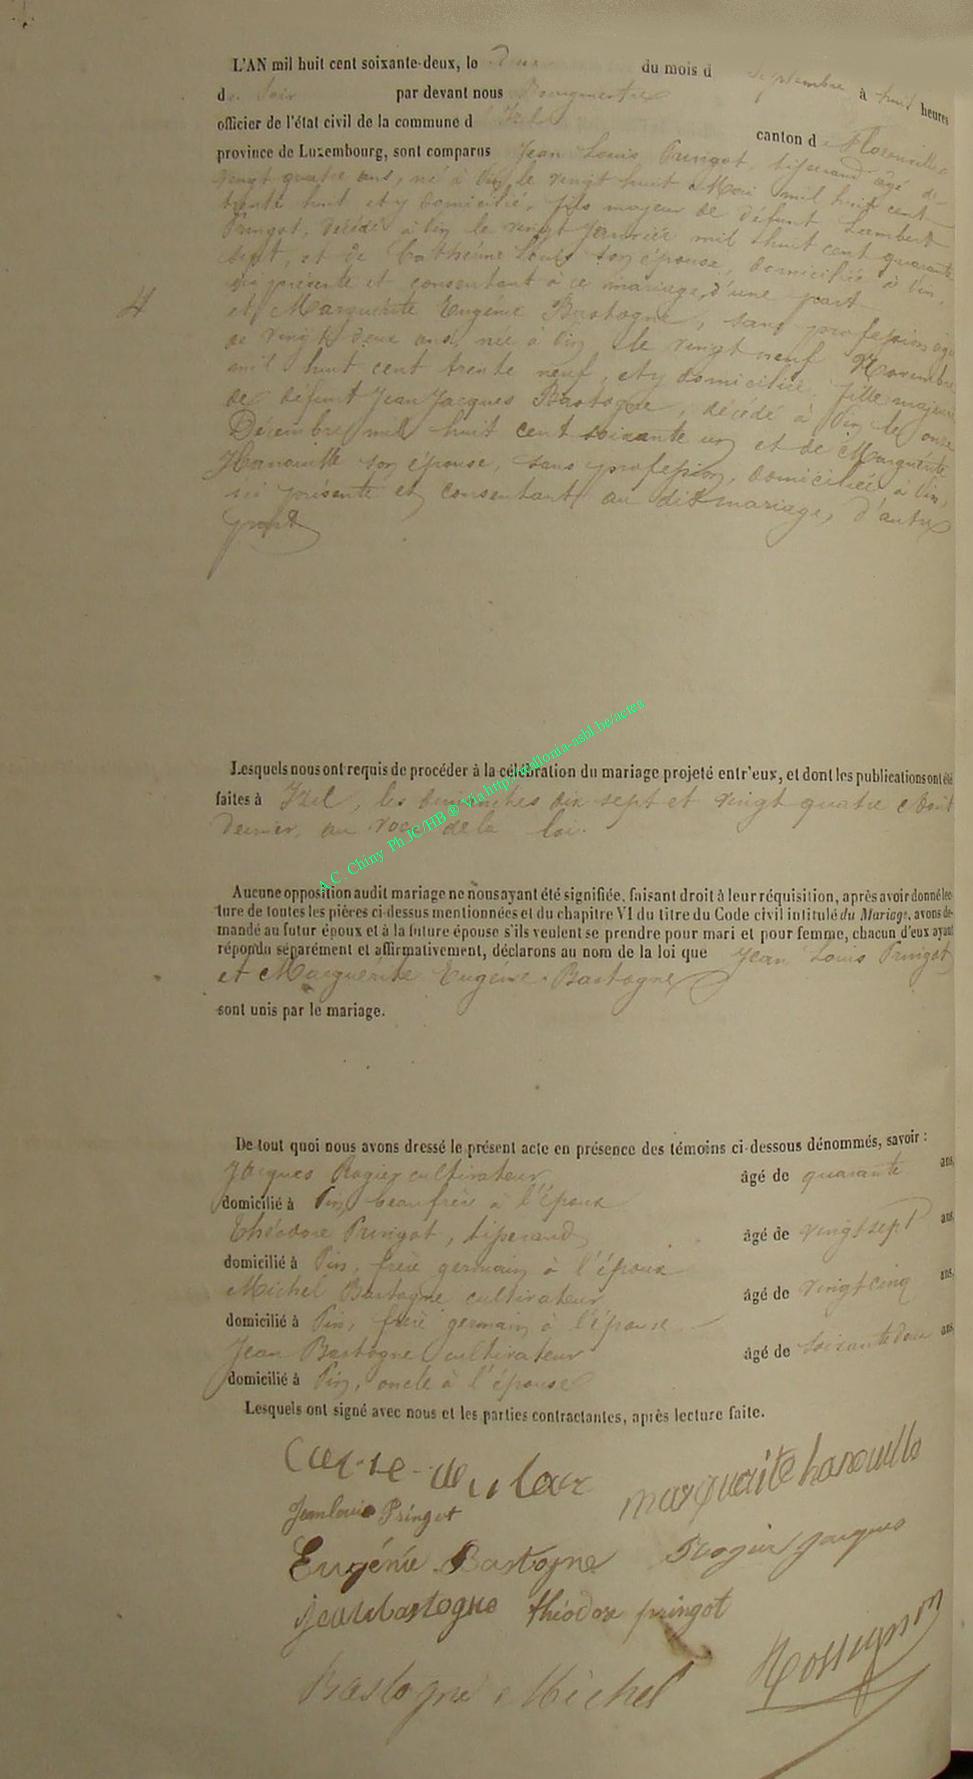 L'AN mil huit cent soixante-deux, le deux du mois de Septembre à huit heures
du Soir par devant nous Bourgmestre
officier de l'état civil de la commune d'Izel canton de Florenville
province de Luxembourg, sont comparus Jean Louis Pringot, tisserand âgé de
vingt quatre ans, né à Pin, le vingt huit Mai mil huit cent
trente huit et y domicilié, fils majeur de défunt Lambert
Pringot, décédé à Pin le vingt Janvier mil huit cent quarante
sept, et de Catherine Louis son épouse, domiciliée à Pin,
ici présente et consentant à ce mariage, d'une part
4
et Marguérite Eugénie Bastogne, sans profession agée
de vingt deux ans, née à Pin le vingt neuf Novembre
mil huit cent trente neuf, et y domiciliée, fille majeure
de défunt Jean Jacques Bastogne, décédé à Pin le onze
Décembre mil huit cent soixante un et de Marguérite
Hanouille son épouse, sans profession, domiciliée à Pin,
ici présente et consentant au dit mariage, d'autre
part
Lesquels nous ont requis de procéder à la célébration du mariage projeté entr'eux, et dont les publications ont été
faites à Izel, les dimanches dix sept et vingt quatre Août
dernier, au vœu de la loi.
A.C. Chiny Ph JC/HB ® Via http://wallonia-asbl.be/actes
Aucune opposition audit mariage ne nous ayant été signifiée, faisant droit à leur réquisition, après avoir donné lec-
ture de toutes les pièces ci-dessus mentionnées et du chapitre VI du titre du Code civil intitulé du Mariage, avons de-
mandé au futur époux et à la future épouse s'ils veulent se prendre pour mari et pour femme, chacun d'eux ayant
répondu séparément et affirmativement, déclarons au nom de la loi que Jean Louis Pringot
et Marguérite Eugénie Bastogne
sont unis par le mariage.
De tout quoi nous avons dressé le présent acte en présence des témoins ci-dessous dénommés, savoir :
Jacques Rogier cultivateur âgé de quarante ans,
domicilié à Pin, beau frère à l'époux
Théodore Pringot, tisserand âgé de vingt sept ans,
domicilié à Pin, frère germain à l'époux
Michel Bastogne cultivateur âgé de vingt cinq ans,
domicilié à Pin, frère germain à l'épouse
Jean Bastogne cultivateur âgé de soixante deux ans
domicilié à Pin, oncle à l'épouse
Lesquels ont signé avec nous et les parties contractantes, après lecture faite.
marguerite hanouille
Jean louis Pringot
Eugénie Bastogne Rogier Jacques
jean bastogne théodore pringot
Rossignon
Bastogne Michel